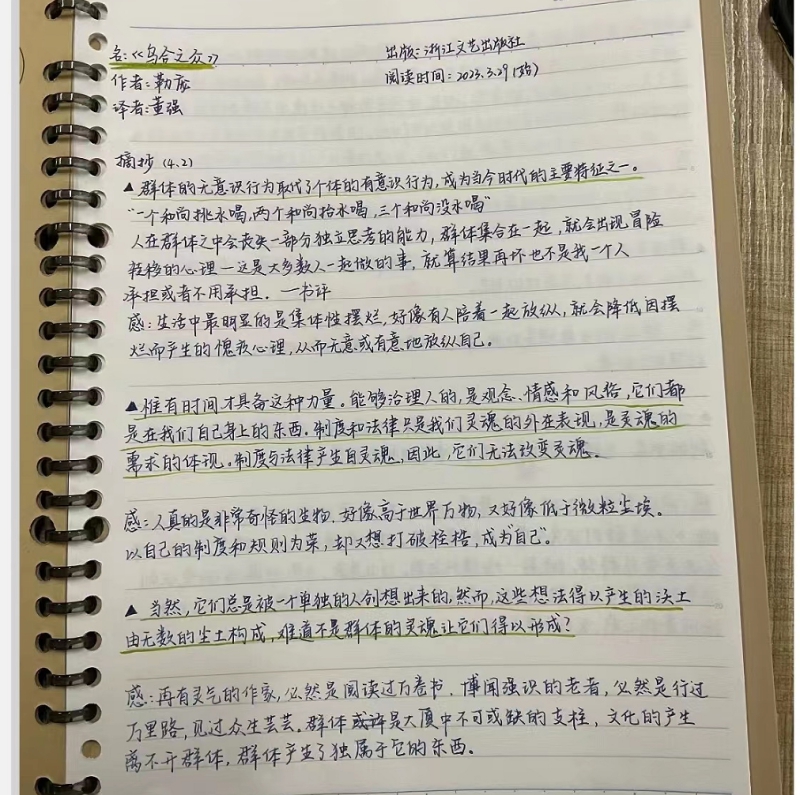 名:《乌合之众》 出版:浙江文艺出版社
作者:勒庞 阅读时间:2023.3.29(始)
译者:董强
摘抄(4.2)
▲群体的无意识行为取代了个体的有意识行为,成为当今时代的主要特征之一。
"一个和尚挑水喝,两个和尚抬水喝,三个和尚没水喝"
人在群体之中会丧失一部分独立思考的能力,群体集合在一起,就会出现冒险
转移的心理—这是大多数人一起做的事,就算结果再坏也不是我一个人
承担或者不用承担.—书评
感:生活中最明显的是集体性摆烂,好像有人陪着一起放纵,就会降低因摆
烂而产生的愧疚心理,从而无意或有意地放纵自己。
▲惟有时间才具备这种力量。能够治理人的,是观念、情感和风俗,它们都
是在我们自己身上的东西.制度和法律只是我们灵魂的外在表现,是灵魂的
需求的体现。制度与法律产生自灵魂,因此,它们无法改变灵魂。
感:人真的是非常奇怪的生物.好像高于世界万物,又好像低于微粒尘埃。
以自己的制度和规则为荣,却又想打破桎梏,成为"自己"。
▲当然,它们总是被一个单独的人创想出来的,然而,这些想法得以产生的沃土
由无数的尘土构成,难道不是群体的灵魂让它们得以形成?
感:再有灵气的作家,必然是阅读过万卷书.博闻强识的老者,必然是行过
万里路,见过众生芸芸。群体或许是大厦中不可或缺的支柱,文化的产生
离不开群体,群体产生了独属于它的东西。